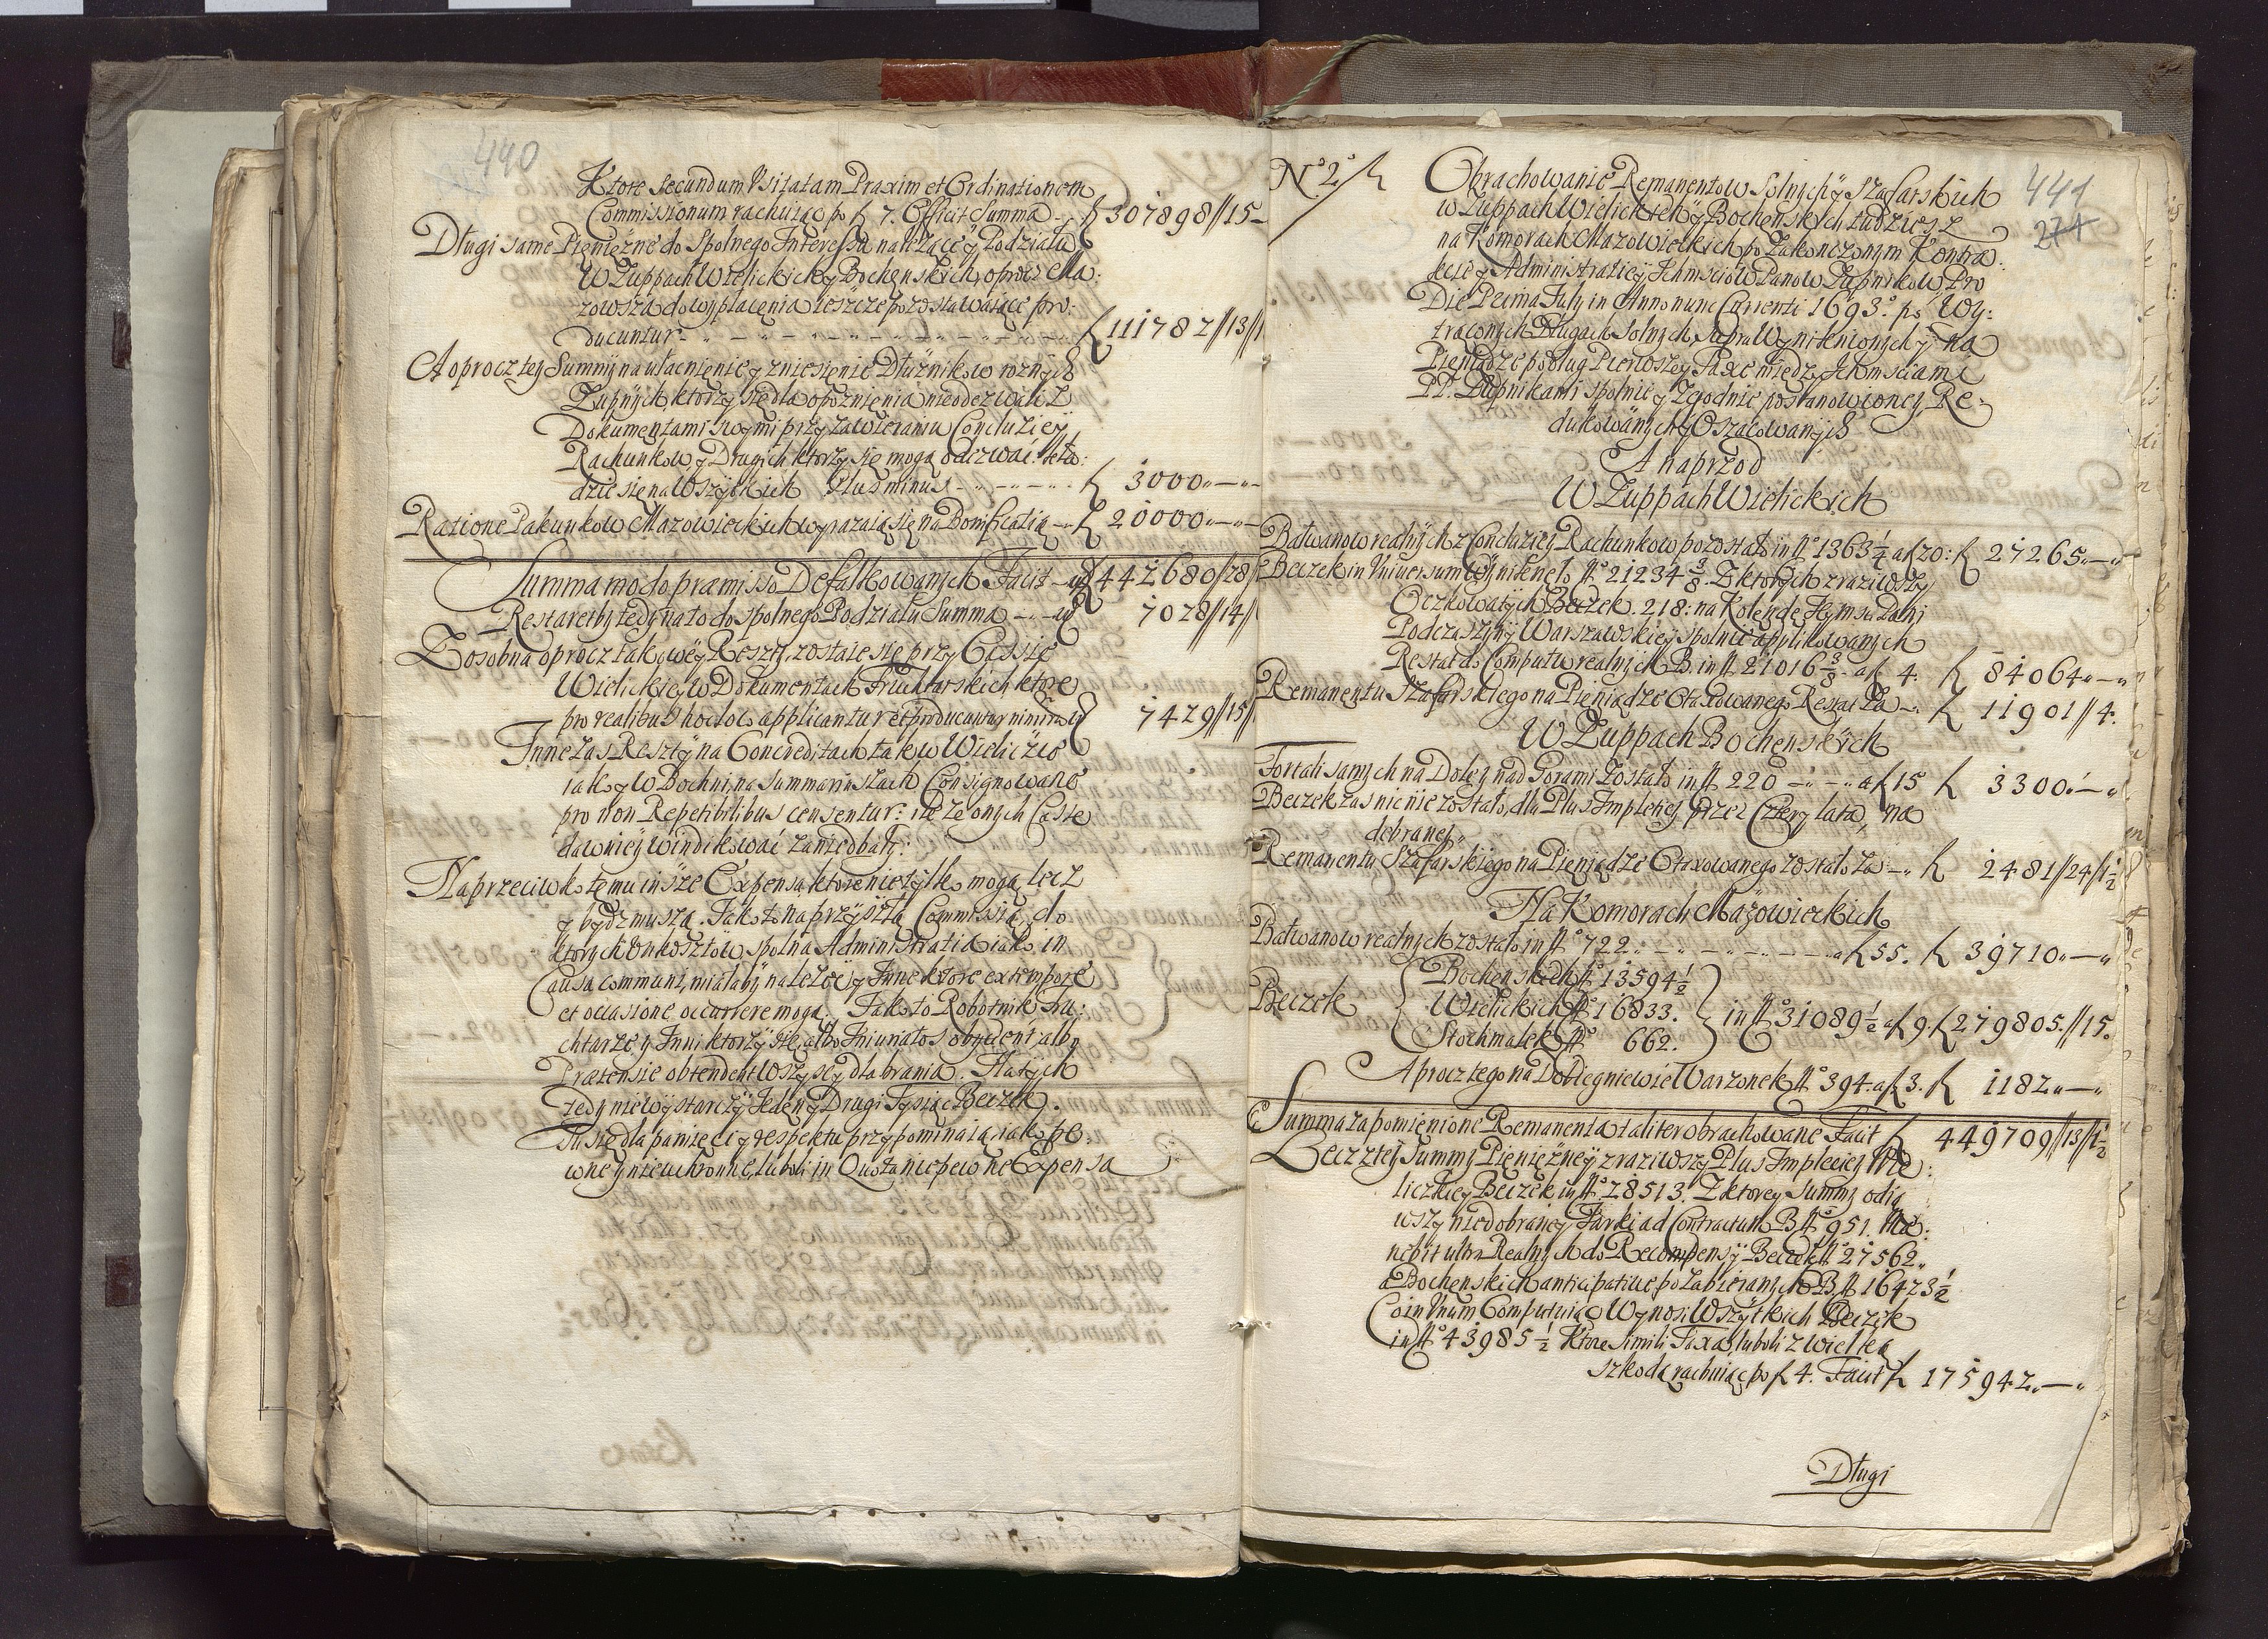 440
Ktore secundum Vsitatam Praxim et Ordinationem
Commissionum rachuiąc po f 7. Efficit Summa - f 307898//15-
Długi same Pieniężne do Spolnego Interessu należące y Podziału
W Zuppach Wielickich y Bochenskich, oprocz Ma:
zowsza do wypłacenia ieszcze pozostawaiące pro:
ducuntur - - - - - - f 111787//13//1
A oprocz tey Summy na ułacnienie y zniesienie Dłużnikow roznych
Zupnych, ktorzy się dla opoznienia nieodezwali z
Dokumentami swymi przy zawieraniu Concluziey
Rachunkow y Drugich ktorzy się mogą odezwać: kła:
dzie się na Wszytkich Plus minus - - - - f 3000.-
Ratione Pakunkow Mazowieckich wyrazaią się na Bonificatią - f 20000.-
Summa modo præmisso Defalkowanych Facit - f 442680//28//
Restaretby tedy na to do spolnego Podziału Summa - - 7028//14//
Zosobna oprocz takowey Reszty, zostaie się przy Cassie
Wielickiey w Dokumentach Fruktarskich ktore
pro realibus hoc loco applicantur et producuntur nimirum 7429//15//
Inne zas Reszty na Concreditach tak w Wieliczce
iak y w Bochni, na Summariuszach Consignowane
pro non Repetibilibus censentur: ile ze onych Casse
dawniey windikować zaniedbały:
Naprzeciwko temu insze Expensa ktore nie tylko mogą lecz
y bydz muszą. Jako to na przyszłą Commissią, do
ktorych Vnkosztow, spolna Administratia iako in
Causa communi, miałaby należeć, y Inne ktore extempore
et occasione occurrere mogą. Jako to Robotnik Fru:
chtarze, y Inni ktorzy się, albo Iniuriatos obijcient, alby
Prætensie obtendent Wszyscy dla brania. Na tych
tedy nie wystarczy Jeden y Drugi Tysiąc Beczek.
Tu się dla pamięci y respektu przypominaią, iako pe:
wne y nieuchronne, luboli in Quota niepewne Expensa
No 2o
441
274
Obrachowanie Remanentow Solnych y Szafarskich
w Zuppach Wielickich y Bochenskich tudziesz
na Komorach Mazowieckich po zakonczonym Kontra:
kcie y Administratiey Ichmsciow Panow Zupnikow, Pro
Die Prima July in Anno nunc Currenti 1693o. po Wy:
traconych Długach Solnych, supra Wyniknionych y na
Pieniądze podług Pierwszey Taxe między Ichmsciami
PP. Zupnikami spolnie y Zgodnie postanowioney Re:
dukowanych y Oszacowanych
A naprzod
W Zuppach Wielickich
Bałwanow realnych z Concluziey Rachunkow pozostało in No 1363 1/4 a f 20: f 27265.-
Beczek in Vniversum wyniknęło No 21234 3/8. Z ktorych zraziwszy
Oczkowatych Beczek. 218: na Kolendę Jeymsc Pani
Podczaszyny Warszawskiey spolnie applikowanych
Restat do Computu realnych B. in No 21016 3/8. a f 4. f 84064.-
Remanentu Szafarskiego na Pieniądze Otaxowanego Restat za - f 11901//4.
W Zuppach Bochenskich
Fortali samych na Doley nad Gorami zostało in No 220 - - a f 15 f 3300.-
Beczek zas nic nie zostało, dla Plus Impletiey przez Cztery lata, na
debraney.
Remanentu Szafarskiego na Pieniądze Otaxowanego zostało za - f 2481//24//1/2
Na Komorach Mazowieckich
Bałwanow realnych zostało in No 722. - - - - a f 55. f 39710.-
Beczek
Bochenskich No 13594 1/2
Wielickich No 16833.
Stochmalek No 662.
in No 31089 1/2 a f 9. f 279805.//15.
A procz tego na Dobiegniewie Warzonek No 394. a f 3. f 1182.-
Summa za pomienione Remanenta taliter obrachowane Facit f 449709//13//1/2
Lecz z tey Summy Pieniężney zraziwszy Plus Impletiey Wie:
liczkiey Beczek in No 28513. Z ktorey Summy odią
wszy niedobraney Farki ad Contractum B No 951. Ma:
nebit ultra Realnych do Recompensy Beczek No 27562.
a Bochenskich anticipative pozabieranych B. No 16423 1/2
Co in Vnum Computuiąc Wynosi Wszytkich Beczek
in No 43985 1/2 Ktore simili Taxa, luboli z wielką
szkodą rachuiąc po f 4. Facit f 175942.-
Długi